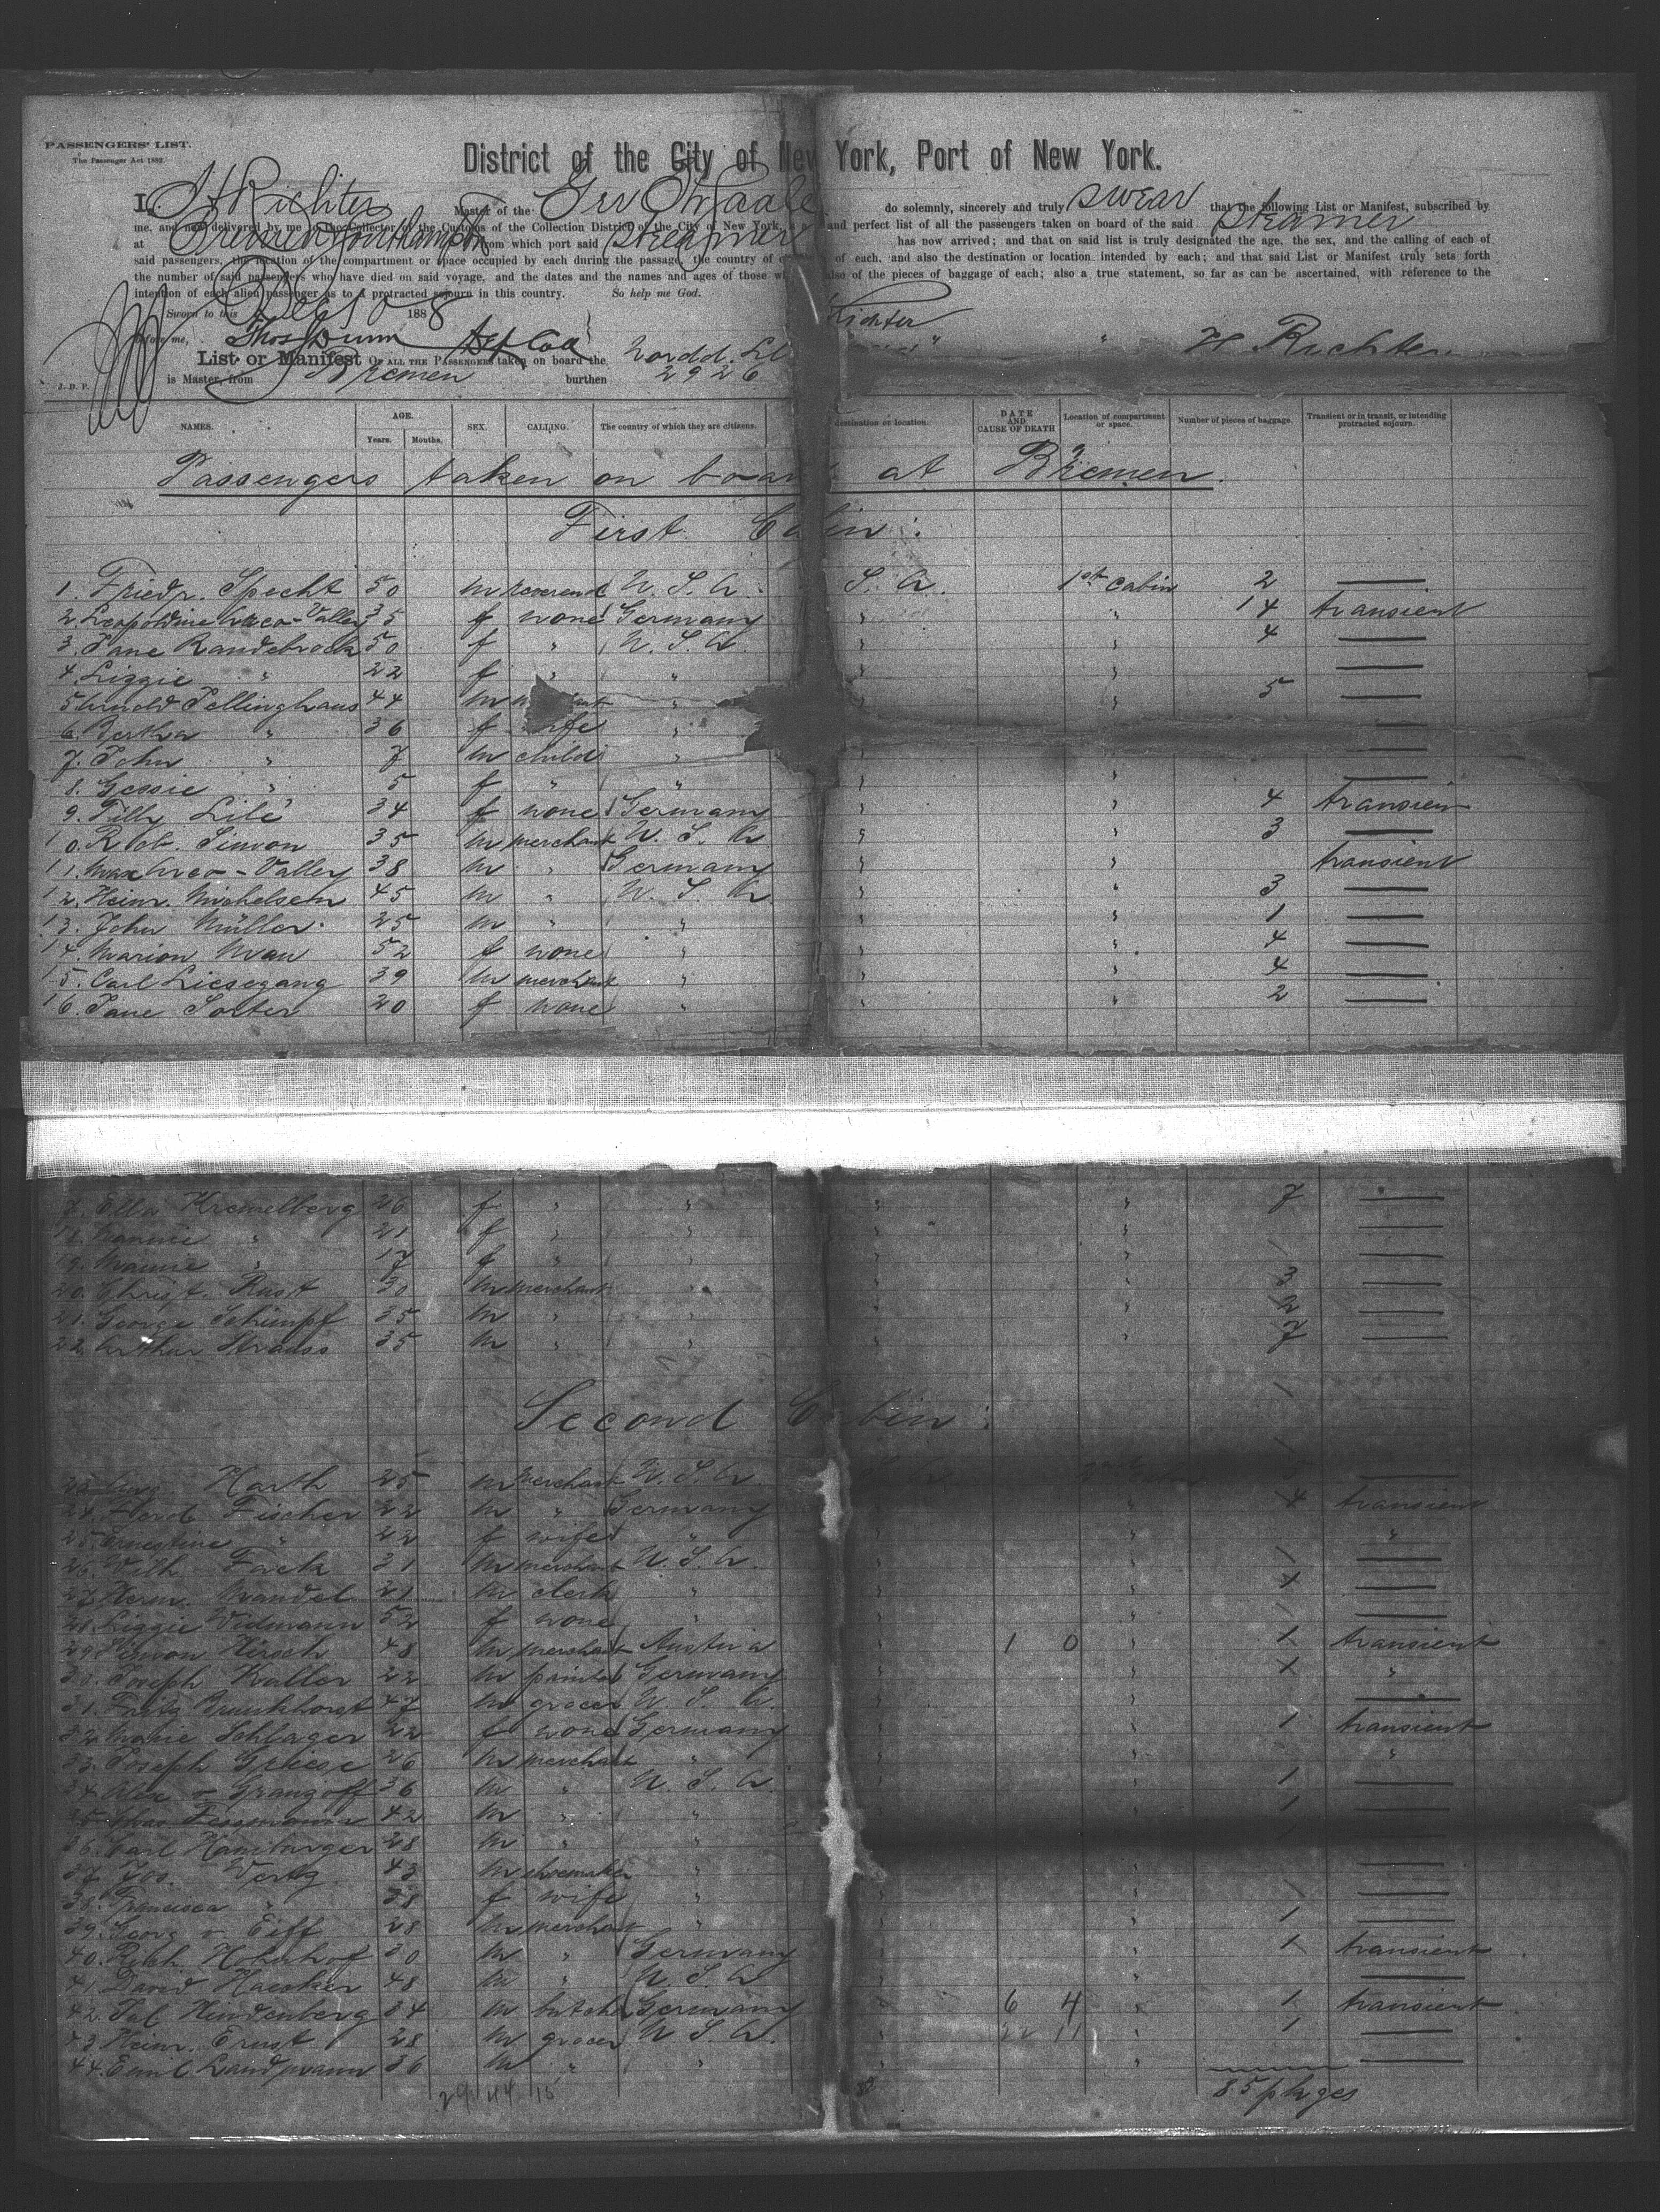 PASSENGERS' LIST.
The Passenger Act 1882.
District of the City of New York, Port of New York.
I, H Richter Master of the Ger Str Saale do solemnly, sincerely and truly swear that the following List or Manifest, subscribed by
me, and now delivered by me to the Collector of the Customs of the Collection District of the City of New York, and perfect list of all the passengers taken on board of the said steamer
at Bremen Southampton from which port said steamer has now arrived; and that on said list is truly designated the age, the sex, and the calling of each of
said passengers, the location of the compartment or space occupied by each during the passage, the country of of each, and also the destination or location intended by each; and that said List or Manifest truly sets forth
the number of said passengers who have died on said voyage, and the dates and the names and ages of those also of the pieces of baggage of each; also a true statement, so far as can be ascertained, with reference to the
intention of each alien passenger as to a protracted sojourn in this country. So help me God.
Sworn to this Dec 10 1888 Richter
before me, Thos Dunn H Richter.
List or Manifest OF ALL THE PASSENGERS taken on board the Nordd. Ll
J. D. P. is Master, from Bremen burthen 2926
NAMES. AGE. Years. Months. SEX. CALLING. The country of which they are citizens. destination or location. DATE AND CAUSE OF DEATH Location of compartment or space. Number of pieces of baggage. Transient or in transit, or intending protracted sojourn.
Passengers taken on board at Bremen.
First Cabin:
1. Friedr. Specht 50 m reverend U. S. A. S. A. 1st cabin 2 —
2. Leopoldine -Valley 35 f none Germany " " 14 transient
3. Jane Randebrock 50 f " U. S. A. " " 4 —
4. Lizzie " 22 f " " " " —
5. Arnold Pellinghaus 44 m " " " 5 —
6. Bertha " 36 f wife " —
7. John " 7 m child " " —
8. Gessie " 5 f " " " " —
9. Tilly Lilé 34 f none Germany " " 4 transient
10. Rob. Simon 35 m merchant U. S. A. " " 3 —
11. Max -Valley 38 m " Germany " " transient
12. Heinr. Michelsen 45 m " U. S. A. " " 3 —
13. John Müller 25 m " " " " 1 —
14. Marion Mau 52 f none " " " 4 —
15. Carl Liesegang 39 m merchant " " " 4 —
16. Jane Solter 20 f none " " " 2 —
7. Ella Kremelberg 26 f " " " " 7 —
18. Nannie " 21 f " " " " —
19. Mamie " 17 f " " " " —
20. Christ. Rust 30 m merchant " " " 3 —
21. George Schimpf 35 m " " " " 2 —
22. Arthur Strauss 35 m " " " " 7 —
Second Cabin:
23. Aug. Harth 25 m merchant U. S. A. —
24. Ferd. Fischer 22 m " Germany " " 4 transient
25. Ernestine " 22 f wife " " " "
26. Wilh. Fack 31 m merchant U. S. A. " " 1 —
27. Herm. Mandel 21 m clerk " " " 1 —
28. Lizzie Widmann 52 f none " " " 1 —
29. Simon Hirsch 48 m merchant Austria " 1 0 " 1 transient
30. Joseph Kaller 22 m painter Germany " " 1 "
31. Fritz Brunkhorst 47 m grocer U. S. A. " " —
32. Marie Schlager 22 f none Germany " " 1 transient
33. Joseph Griese 26 m merchant " " " "
34. Alex v Grangoff 36 m " U. S. A. " " 1 —
35. Chas Fessmann 42 m " " " 1 —
36. Carl Hamburger 28 m " "
37. Jos. Wertz 43 m shoemaker " " —
38. Francisca " 38 f wife " " " 1 —
39. Georg v Eiff 28 m merchant " " " 1 —
40. Rich. Hohnhof 30 m " Germany " " 1 transient
41. David Haecker 48 m " U. S. A. " " —
42. Sal. Hindenberg 34 m butcher Germany " 6 4 " 1 transient
43. Heinr. Ernst 28 m grocer U. S. A. " 22 11 " 1 —
44. Emil Landmann 36 m " " " " —
29 44 15 85 pkges